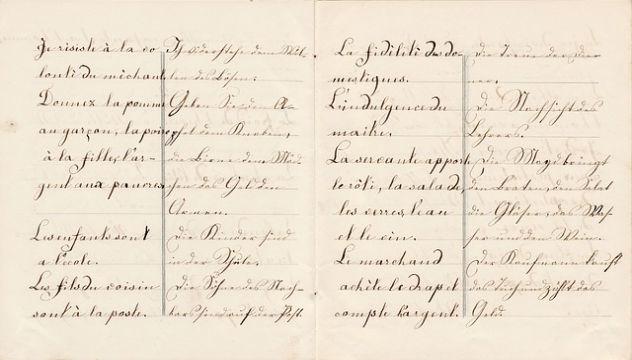 Je risiste à la vo
lonti du michant
Donnez la pomme
au garçon, la poire
à la fille, l'ar-
gent aux pauvres.
Les enfants sont
a l'ecole.
Les fils du voisin
sont à la poste.
Ich widerstehe dem Wil-
len des Bösen.
Geben Sie den A-
pfel dem Knaben,
die Birne dem Mäd
chen das Geld den
Armen.
die Kinder sind
in der Schule.
die Söhne des Nach-
bars sind auf der Post.
La fidiliti des do-
mestiques.
L'indulgence du
maitre.
La servante apporte
le rôti, la salade,
les verres, l'eau
et le vin.
Le marchand
achète le drap et
compte l'argent.
die Treue der die-
ner.
die Nachsicht des
Lehrers.
die Magd bringt
den Braten, den Salat
die Gläser, das Was-
ser und den Wein.
der Kaufmann kauft
das Tuch und zählt das
Geld